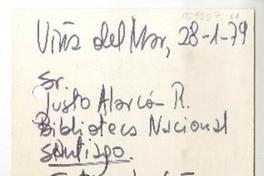 Viña del Mar, 28-1-79
Sr.
Justo Alarcón R.
Biblioteca Nacional
Santiago.